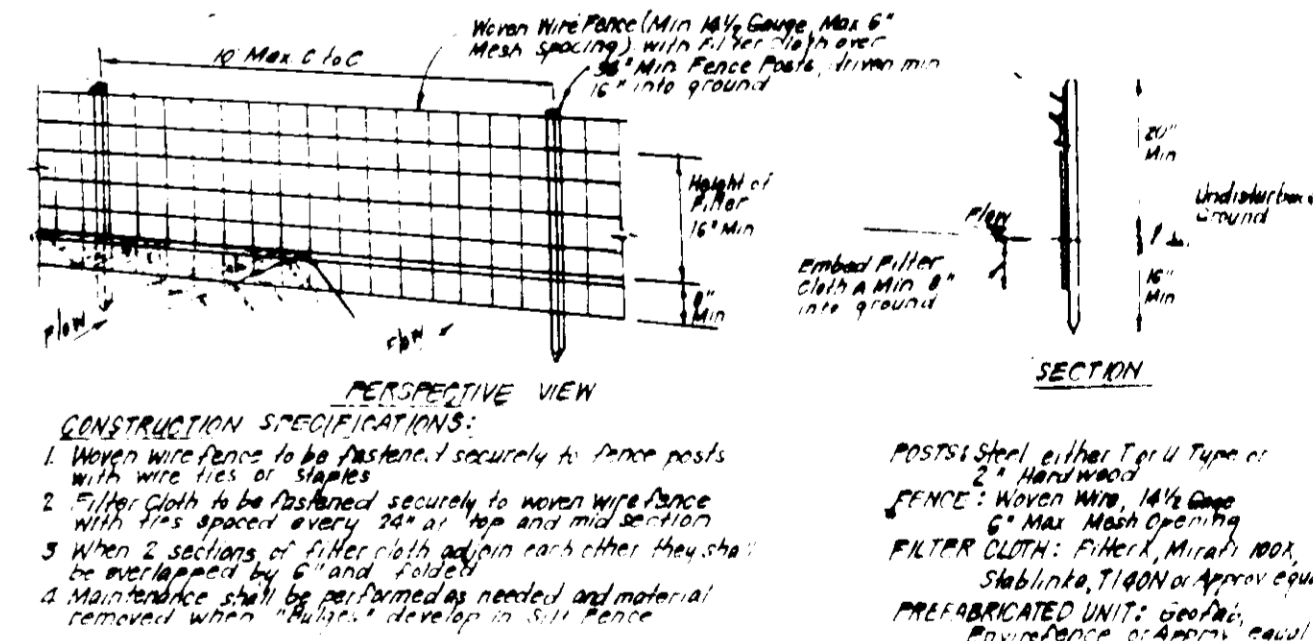 Woven Wire Fence (Min 14½ Gauge, Max 6"
Mesh spacing) with Filter Cloth over
10' Max. C to C
36" Min Fence Posts, driven min
16" into ground
Height of
Filter
16" Min
8"
Min
Flow
Flow
PERSPECTIVE VIEW
20"
Min
Undisturbed
Ground
Flow
Embed Filter
Cloth A Min 8"
into ground
16"
Min
SECTION
CONSTRUCTION SPECIFICATIONS:
1. Woven wire fence to be fastened securely to fence posts
with wire ties or staples
2 Filter Cloth to be fastened securely to woven wire fence
with ties spaced every 24" at top and mid section
3 When 2 sections of filter cloth adjoin each other they shal
be overlapped by 6" and folded
4 Maintenance shall be performed as needed and material
removed when "Bulges" develop in Silt Fence
POSTS: Steel either T or U Type or
2" Hardwood
FENCE: Woven Wire, 14½ Gage
6" Max Mesh Opening
FILTER CLOTH: Filter X, Mirafi 100X,
Stablinka, T140N or Approv equal
PREFABRICATED UNIT: Geofab,
Envirofence or Approv equal